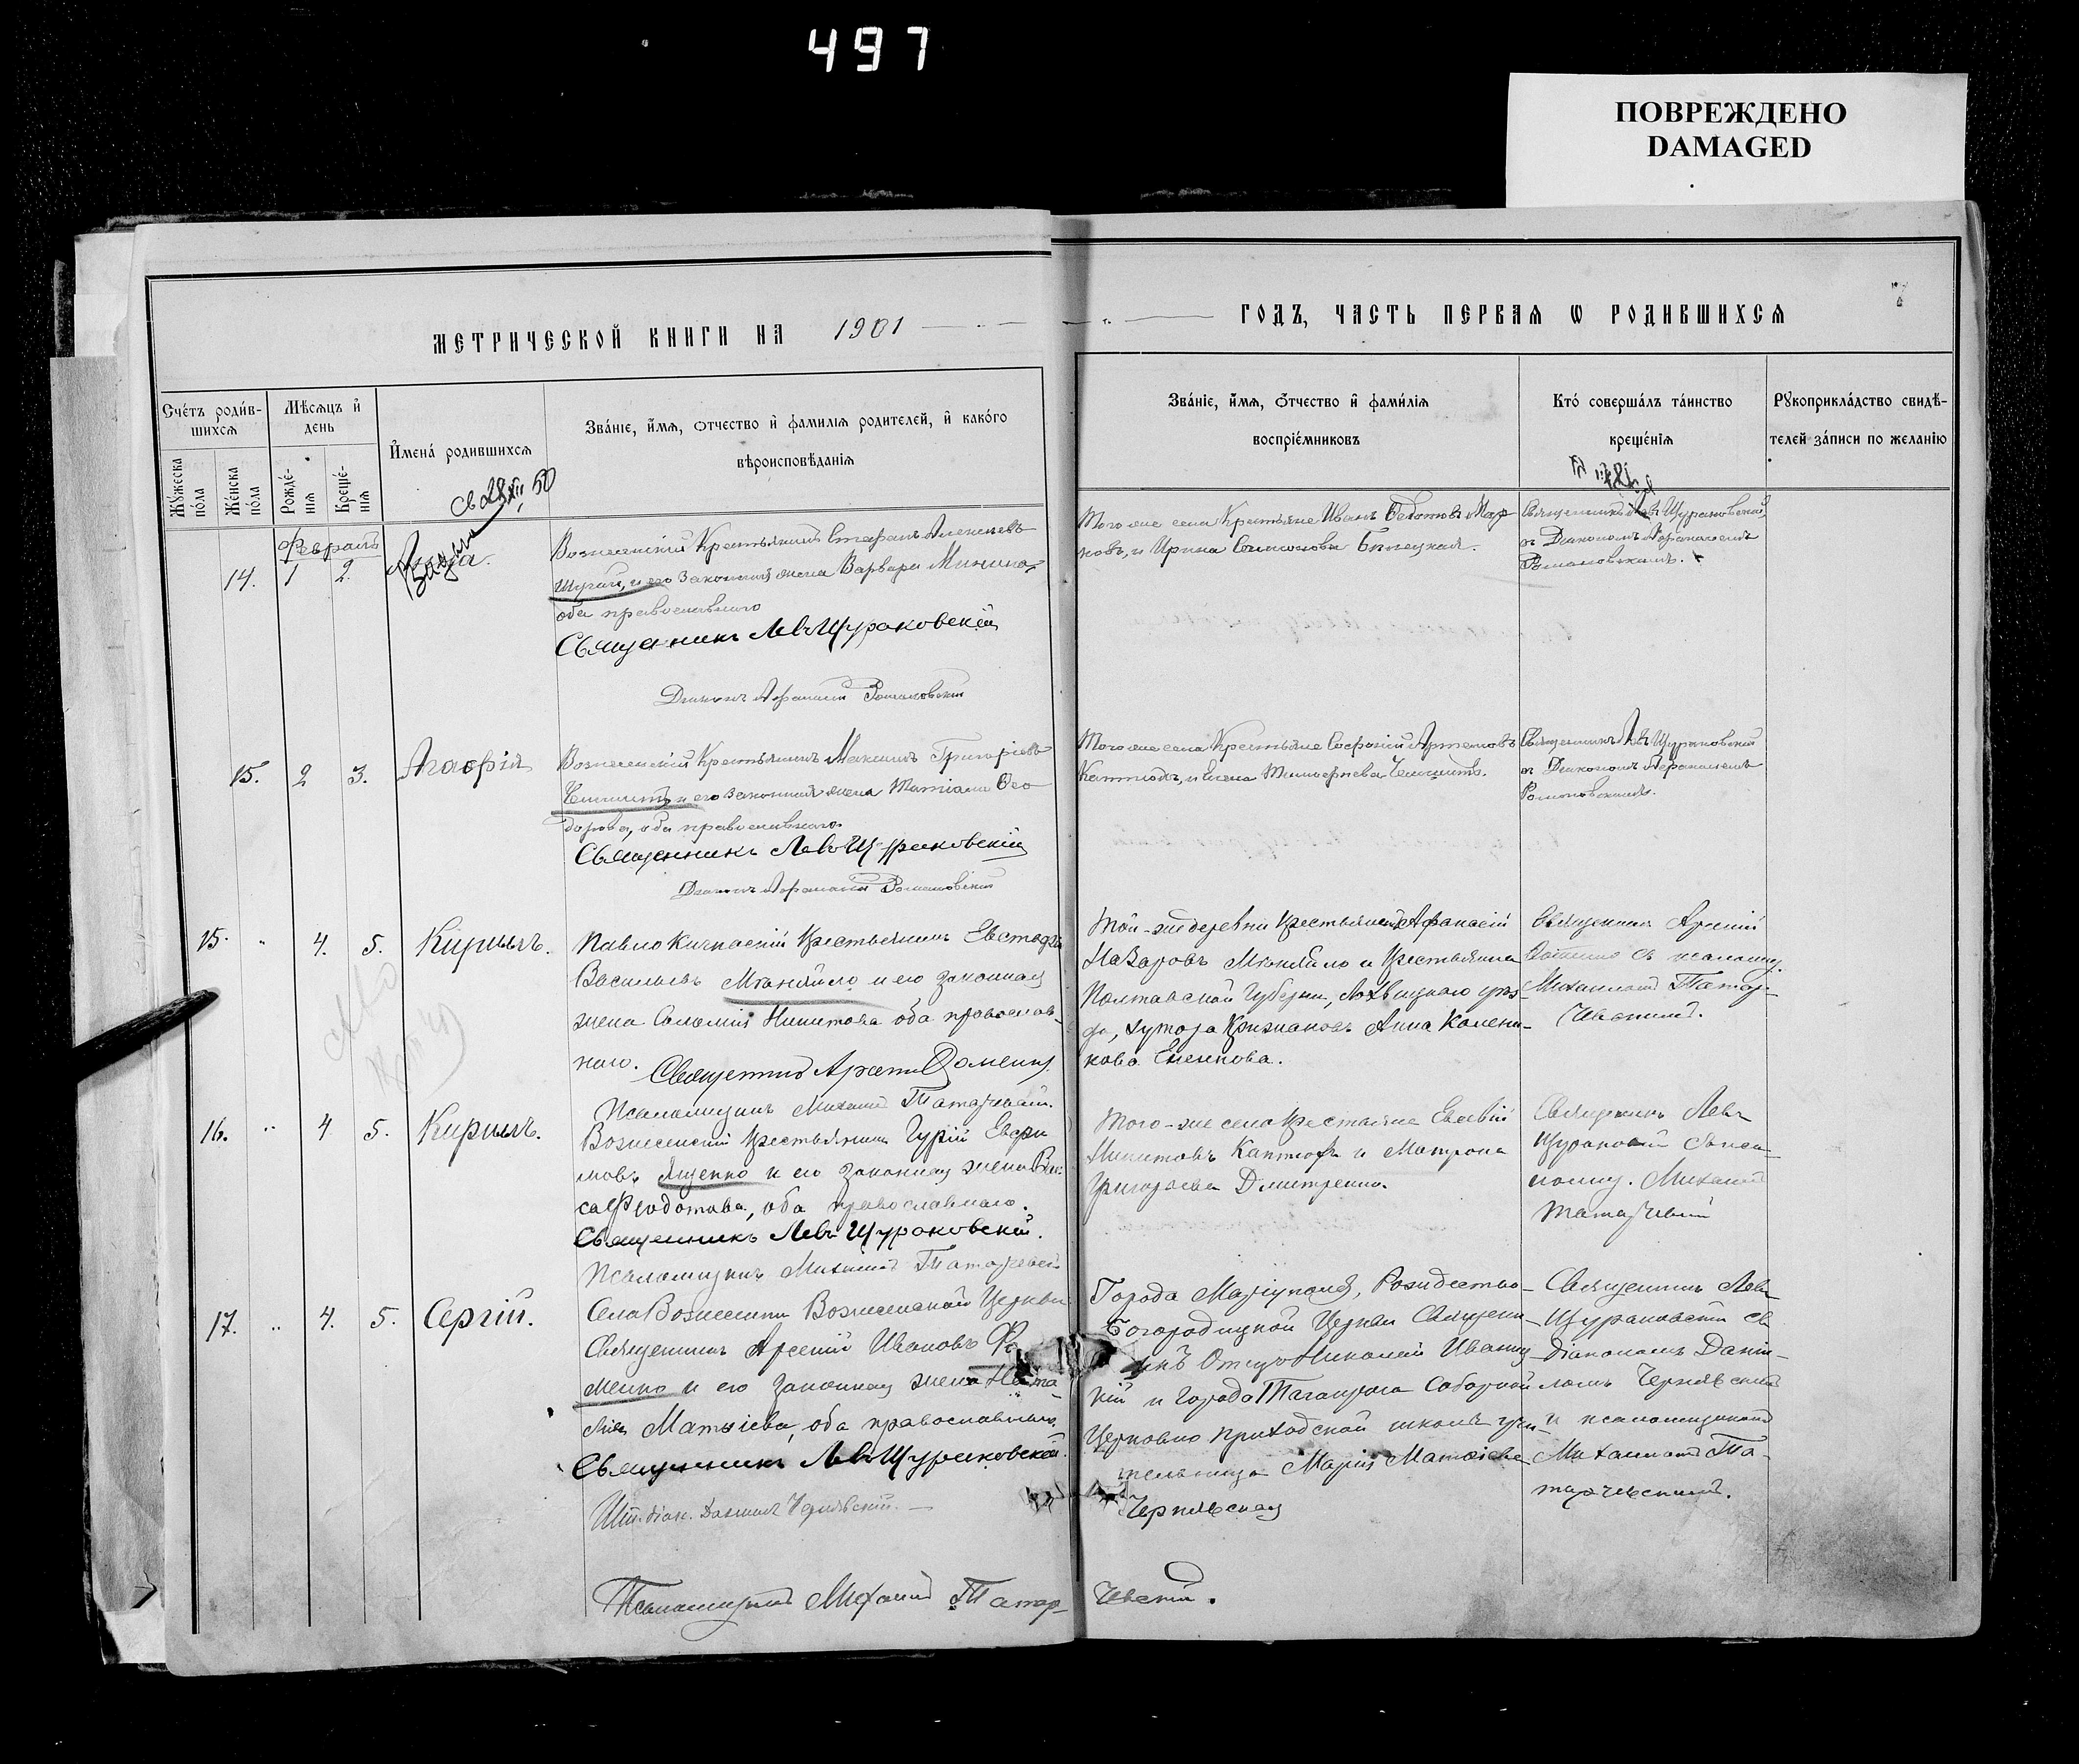 497
ПОВРЕЖДЕНО
DAMAGED
7
МЕТРИЧЕСКОЙ КНИГИ НА 1901
ГОДЪ, ЧАСТЬ ПЕРВАЯ Ѡ РОДИВШИХСЯ
Счетъ родив-
шихся
Мужеска
пола
Женска
пола
Мѣсяцъ и
день
Рожде-
нія
Креще-
нія
Имена родившихся
Званіе, имя, отчество и фамилія родителей, и какого
вѣроисповѣданія
Званіе, имя, отчество и фамилія
воспріемниковъ
Кто совершалъ таинство
крещенія
Рукоприкладство свидѣ-
телей записи по желанію
Февраль
14. 1 2.
Вознесенскій Крестьянинъ Стефанъ Алексѣевъ
и его законная жена Варвара Минина,
оба православнаго
Священникъ Левъ Щураковскій
Діаконъ Афанасій Романовскій
Того же села Крестьяне Иванъ Федотовъ Мар
ковъ, и Ирина Семенова Билецкая.
Священникъ Левъ Щураковскій,
съ Діакономъ Афанасіемъ
Романовскимъ.
15. 2 3. Агафія
Вознесенскій Крестьянинъ Максимъ Григорьевъ
и его законная жена Татіана Ѳео
дорова, оба православнаго
Священникъ Левъ Щураковскій
Діаконъ Афанасій Романовскій
Того же села Крестьяне Софроній Артемовъ
Каптюхъ, и Елена Тимофѣева
Священникъ Левъ Щураковскій
съ Діакономъ Афанасіемъ
Романовскимъ.
15. " 4. 5. Кириллъ.
Павло Кичкаскій крестьянинъ Евстафій
Васильевъ Моканяйло и его законная
жена Соломія Никитова оба православ-
наго. Священникъ Арсеній Фоменко
Псаломщикъ Михаилъ Татарчевскій.
Той-же деревни крестьянинъ Афанасій
Назаровъ Моканяйло и крестьянка
Полтавской Губерніи, Лохвицкаго уѣз-
да, хутора Анна Калени-
кова
Священникъ Арсеній
Фоменко съ псаломщ.
Михаиломъ Татар-
чевскимъ.
16. " 4 5. Кириллъ.
Вознесенскій крестьянинъ Гурій Евфи
мовъ Ященко и его законная жена Ва-
са Феодотова, оба православнаго.
Священникъ Левъ Щураковскій.
Псаломщикъ Михаилъ Татарчевскій
Того-же села крестьяне Евсевій
Никитовъ Каптюхъ и Матрона
Григорьева Дмитренко.
Священникъ Левъ
Щураковскій съ пса-
ломщ. Михаилъ
Татарчевскій
17. " 4. 5. Сергій.
Села Вознесенки Вознесенской Церкви
Священникъ Арсеній Ивановъ Фо
менко и его законная жена Ната-
лія Матѳіева, оба православнаго.
Священникъ Левъ Щураковскій.
Шт. діак. Даніилъ Чернявскій.
Псаломщикъ Михаилъ Татар-
чевскій.
Города Маріуполя, Рождество-
Богородицкой Церкви Священ-
никъ Отецъ Николай Иваниц
кій и города Таганрога Соборной
Церковно приходской школы учи-
тельница Марія Матѳіева
Чернявская
Священникъ Левъ
Щураковскій съ
діакономъ Даніи-
ломъ Чернявскимъ
и псаломщикомъ
Михаиломъ Та-
тарчевскимъ.